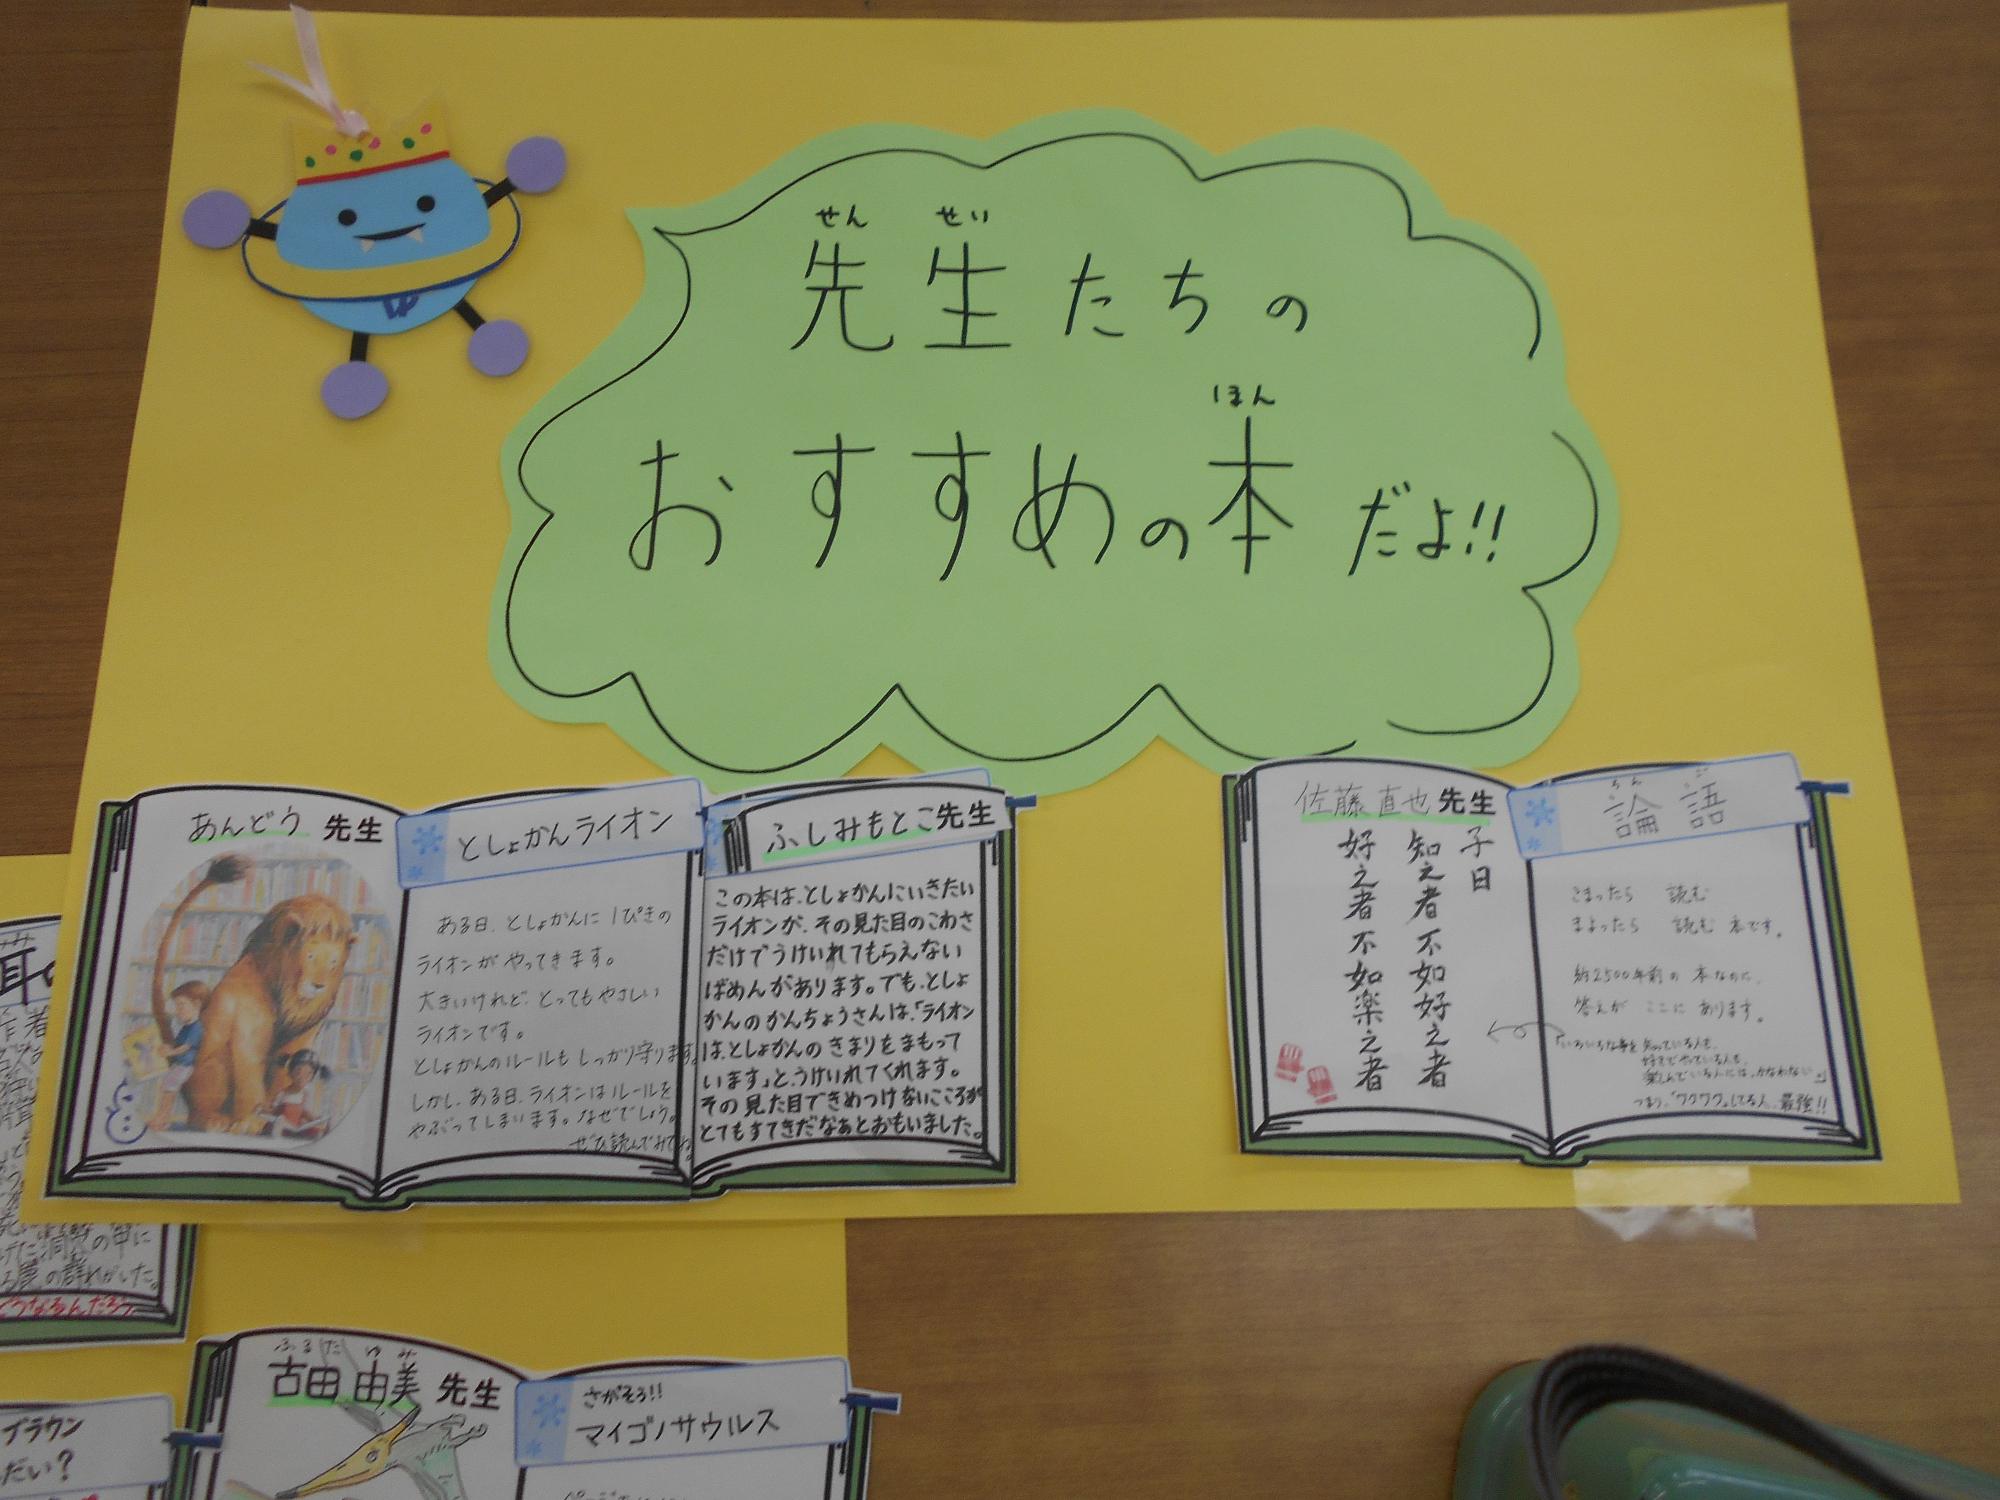 せん せい
先生たちの
ほん
おすすめの本だよ!!
ゆ
あんどう 先生
としょかんライオン
ある日、としょかんに1ぴきの
ライオンがやってきます。
大きいけれど、とってもやさしい
ライオンです。
としょかんのルールもしっかり守ります。
しかし、ある日、ライオンはルールを
やぶってしまいます。なぜでしょう。
ぜひ読んでみてね。
ふしみもとこ先生
この本は、としょかんにいきたい
ライオンが、その見た目のこわさ
だけでうけいれてもらえない
ばめんがあります。でも、としょ
かんのかんちょうさんは、「ライオン
は、としょかんのきまりをまもって
います」と、うけいれてくれます。
その見た目できめつけないこころが
とてもすてきだなぁとおもいました。
佐藤 直也 先生
子曰
知之者不如好之者
好之者不如楽之者
ろん ご
論語
こまったら 読む
まよったら 読む 本です。
約2500年前の 本なのに、
答えが ここに あります。
「いろいろな事を知っている人も、
好きでやっている人も、
楽しんでいる人には、かなわない。」
つまり、「ワクワク」してる人、最強!!
ふるた ゆみ
古田 由美 先生
さがそう!!
マイゴノサウルス
ブラウン
だい?
の群れがいた。